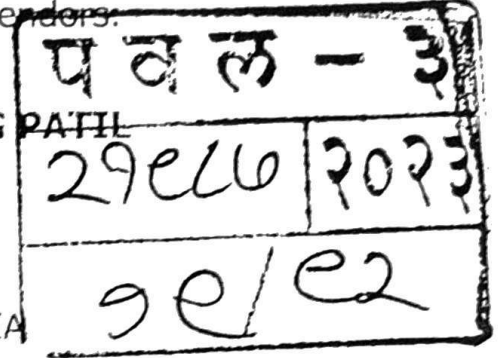 endors:
प व ल - ३
PATIL
२१९८७ २०२३
१९/९२